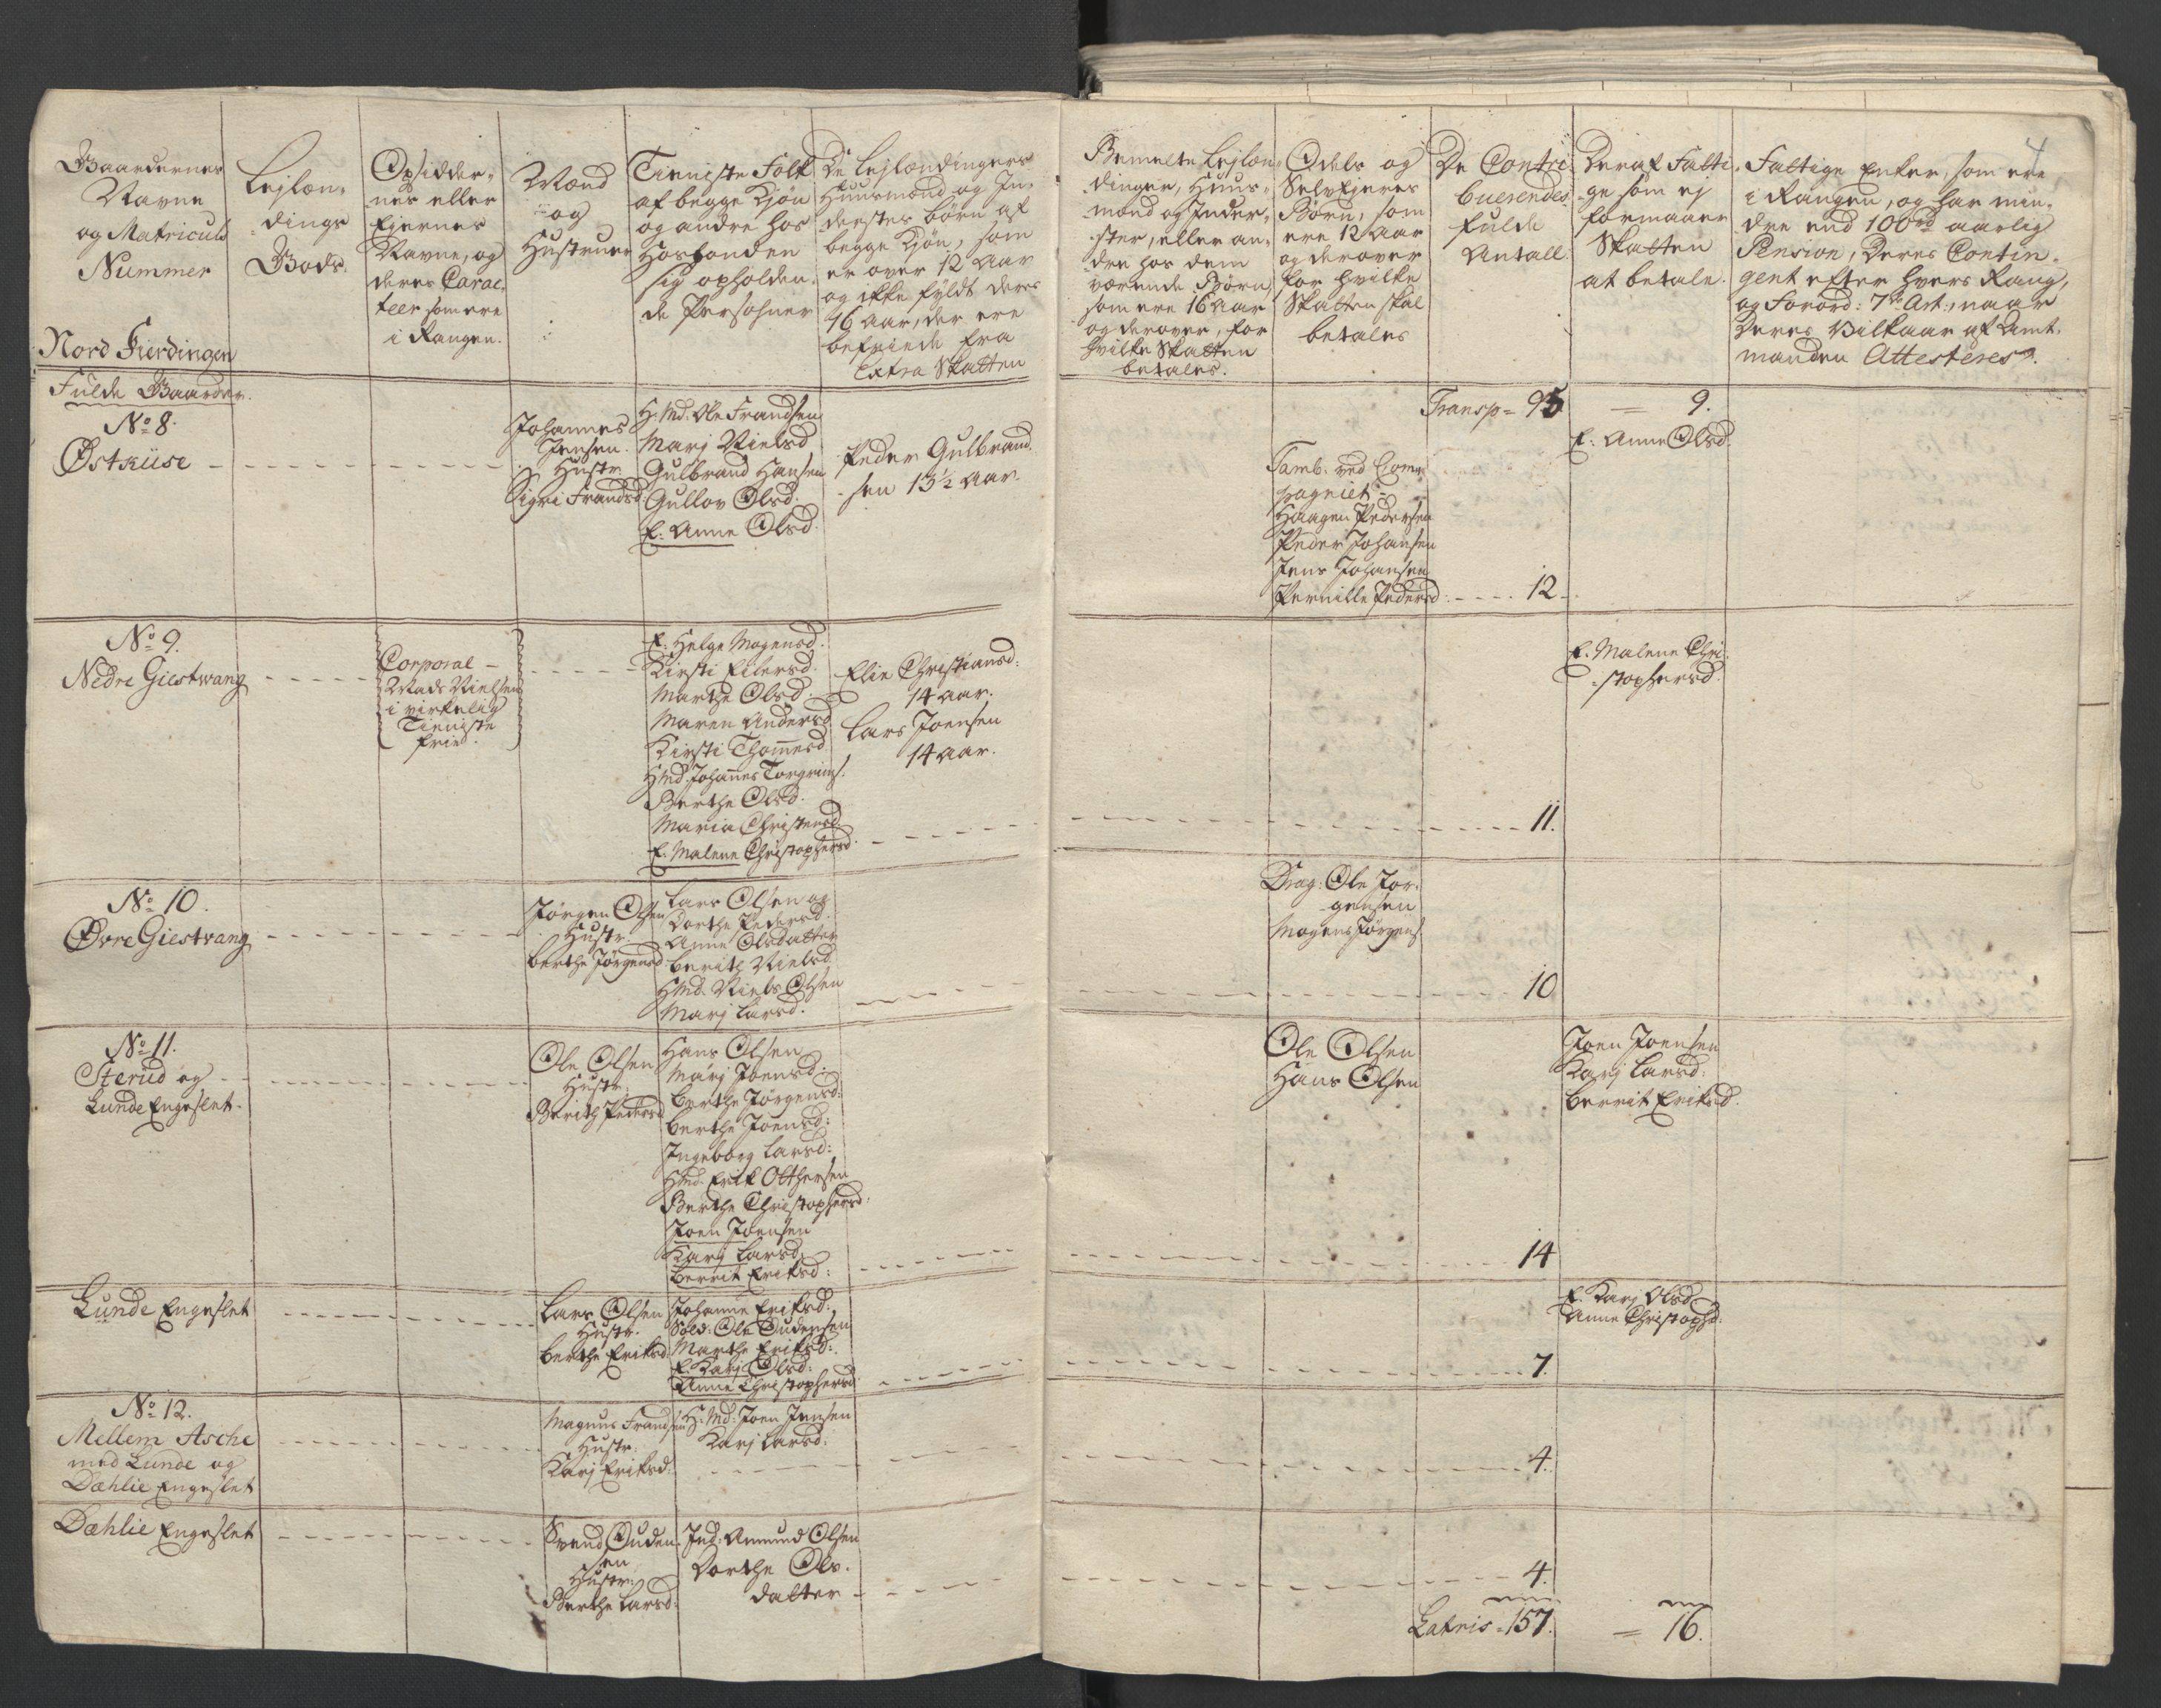 Gaardernes
Navne
og Matriculs
Nummer
Nord Fierdingen
Lejlæn-
dings
Gods.
Opsidder-
nes eller
Ejernes
Navne, og
deres Carac-
teer som ere
i Rangen.
Mænd
og
Hustruer
Tieniste Folk
af begge Kjøn
og andre hos
Hosbonden
sig opholden-
de Persohner
De Lejlændingers
Huusmænd og In-
dersters børn af
begge Kjøn, som
er over 12 Aar
og ikke fyldt deres
16 Aar, der ere
befriede fra
Extra Skatten
Bemelte Lejlæn-
dinger, Huus-
mænd og Inder-
ster, eller an-
dre hos dem
værende Børn,
som ere 16 Aar
og derover, for
hvilke Skatten
betales.
Odels og
Selvejeres
Børn, som
ere 12 Aar
og derover
for hvilke
Skatten skal
betales
De Contri-
buerendes
fulde
Antall
Deraf Fatti-
ge som ej
formaaer
Skatten
at betale.
Fattige Enker, som ere
i Rangen, og har min-
dre end 100 rd aarlig
Pension, Deres Contin-
gent efter hvers Rang,
og Forord: 7de Art., naar
Deres Vilkaar af Amt-
manden Attesteres.
Fulde Gaarder.
Transp = 95 = 9.
No 8.
Østküse
Johannes
Jensen
Hustr:
Sigri Frandsd.
H: Md: Ole Frandsen
Marj Nielsd
Gulbrand Hansen
Gullov Olsd.
E: Anne Olsd.
Peder Gulbrand-
sen 13½ Aar.
Tamb. ved Com-
pagniet
Haagen Pedersen
Peder Johansen
Jens Johansen
Pernille Pedersd: 12
E: Anne Olsd.
No 9.
Nedre Giestwang
Corporal
Mads Nielsen
i virkelig
Tieniste
frie.
E: Helge Mogensd.
Kirsti Eilersd.
Marthe Olsd.
Maren Andersd.
Kirsti Thomesd.
HMd. Johannes Torgrims.
Berthe Olsd.
Maria Christensd.
E. Malene Christophersd.
Elie Christiansd:
14 Aar.
Lars Joensen
14 Aar.
11.
E. Malene Chri-
stophersd.
No 10.
Øvre Giestvang
Jørgen Olsen
Hustr:
Berthe Jørgensd
Lars Olsen og
Dorthe Pedersd.
Anne Olsdatter
Berith Nielsd.
HMd. Niels Olsen
Marj Larsd.
Drag: Ole Jør-
gensen
Mogens Jørgens.
10
No 11.
Sterud og
Lunde Engeslet.
Ole Olsen
Hustr:
Berith Pedersd
Hans Olsen
Marj Joensd:
Berthe Jørgensd:
Berthe Joensd:
Ingeborg Larsd:
HMd. Erik Otthersen
Berthe Christophersd:
Joen Joensen
Karj Larsd.
Berrit Eriksd:
Ole Olsen
Hans Olsen
14
Joen Joensen
Karj Larsd:
Berrit Eriksd.
Lunde Engeslet
Lars Olsen
Hustr.
Berthe Eriksd:
Johanne Eriksd:
Sold: Ole Oudensen
Marthe Eriksd:
E. Karj Olsd:
Anne Christophersd
7.
E. Karj Olsd
Anne Christophd:
No 12.
Mellem Asche
med Lunde og
Dæhlie Engeslet
Magnus Frandsen
Hustr:
Karj Eriksd:
H: Md: Joen Jensen
Karj Larsd:
4.
Dæhlie Engeslet
Svend Ouden-
sen
Hustr:
Berthe Larsd:
Ind: Amund Olsen
Dorthe Ols-
datter
4.
Lateris = 157. = 16.